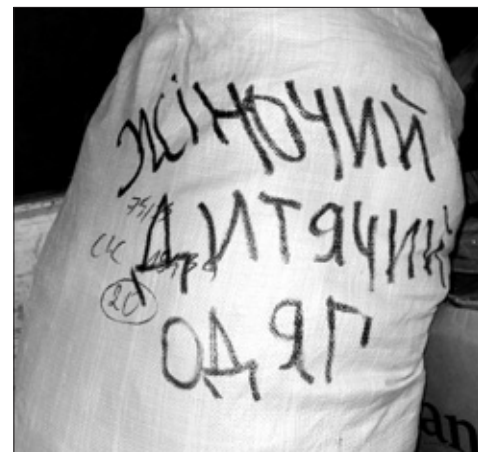 жіночий
дитячий
одяг
20
an